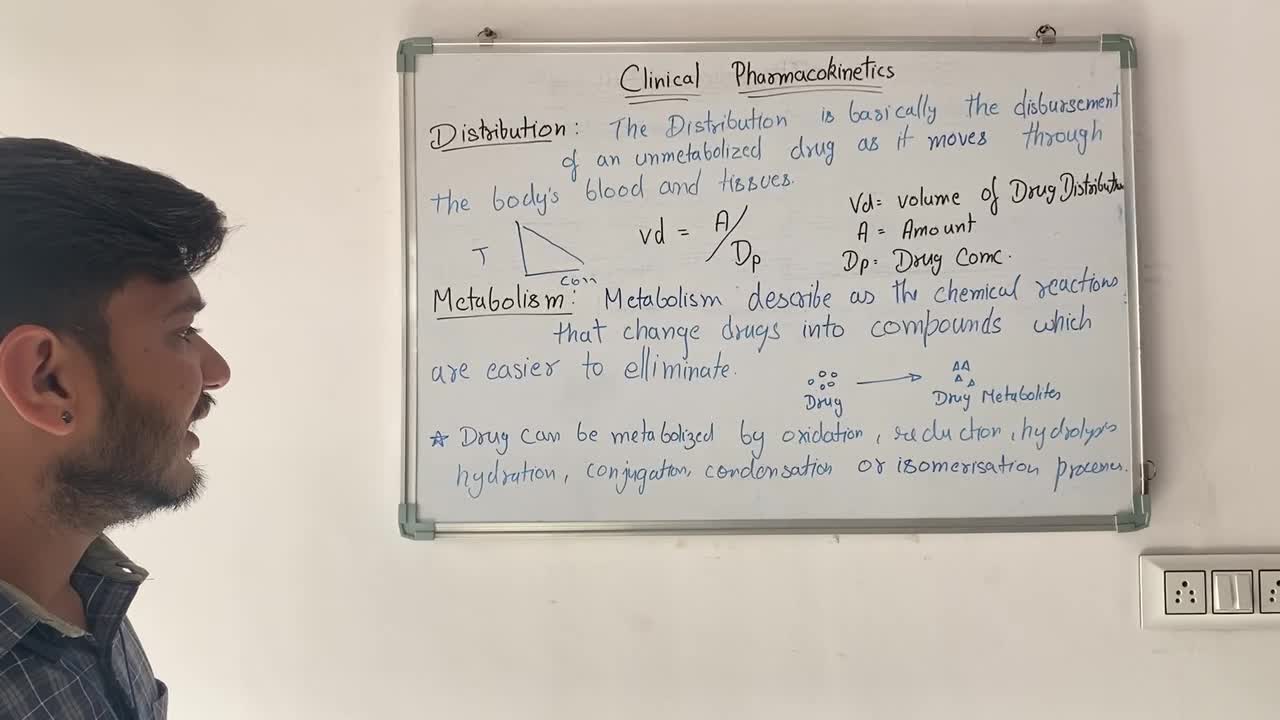 Clinical Pharmacokinetics
Distribution: The Distribution is basically the disbursement
of an unmetabolized drug as it moves through
the body's blood and tissues.
Vd = volume of Drug Distribution
vd = A/Dp
A = Amount
Dp = Drug Conc.
T
Con
Metabolism: Metabolism describe as the chemical reactions
that change drugs into compounds which
are easier to elliminate.
Drug → Drug Metabolites
☆ Drug can be metabolized by oxidation, reduction, hydrolysis
hydration, conjugation, condensation or isomerisation processes.